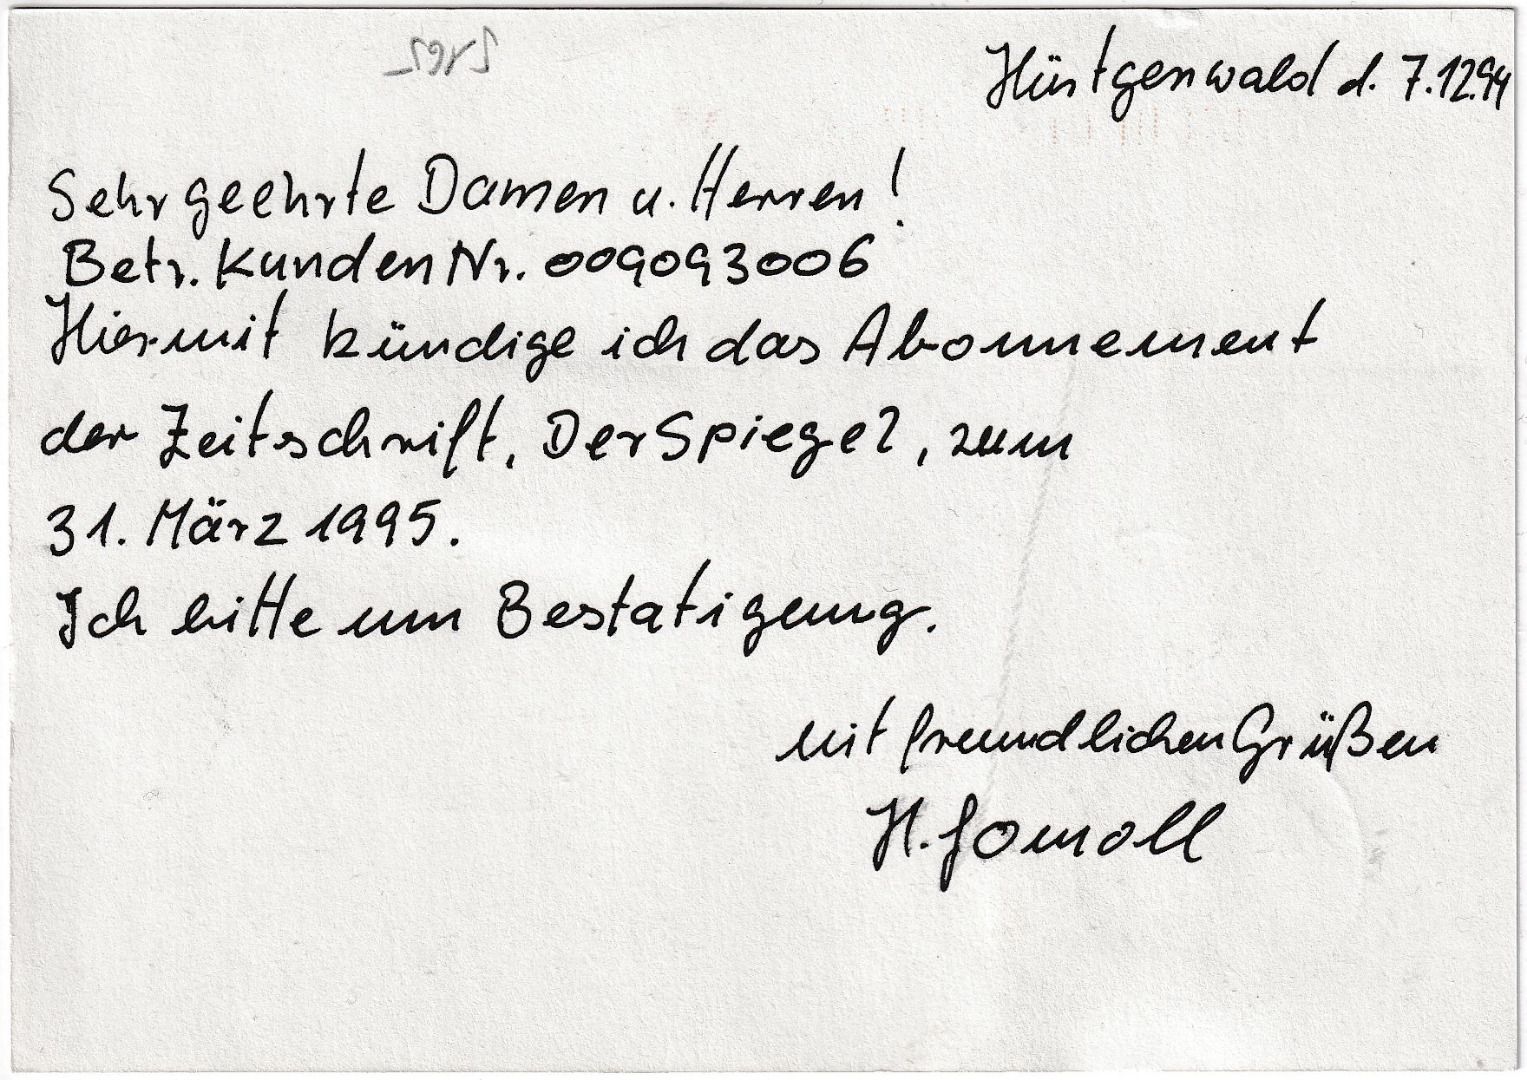 Hürtgenwald d. 7.12.94
Sehr geehrte Damen u. Herren!
Betr. Kunden Nr. 009093006
Hiermit kündige ich das Abonnement
der Zeitschrift, Der Spiegel, zum
31. März 1995.
Ich bitte um Bestatigung.
mit freundlichen Grüßen
H. Gomoll